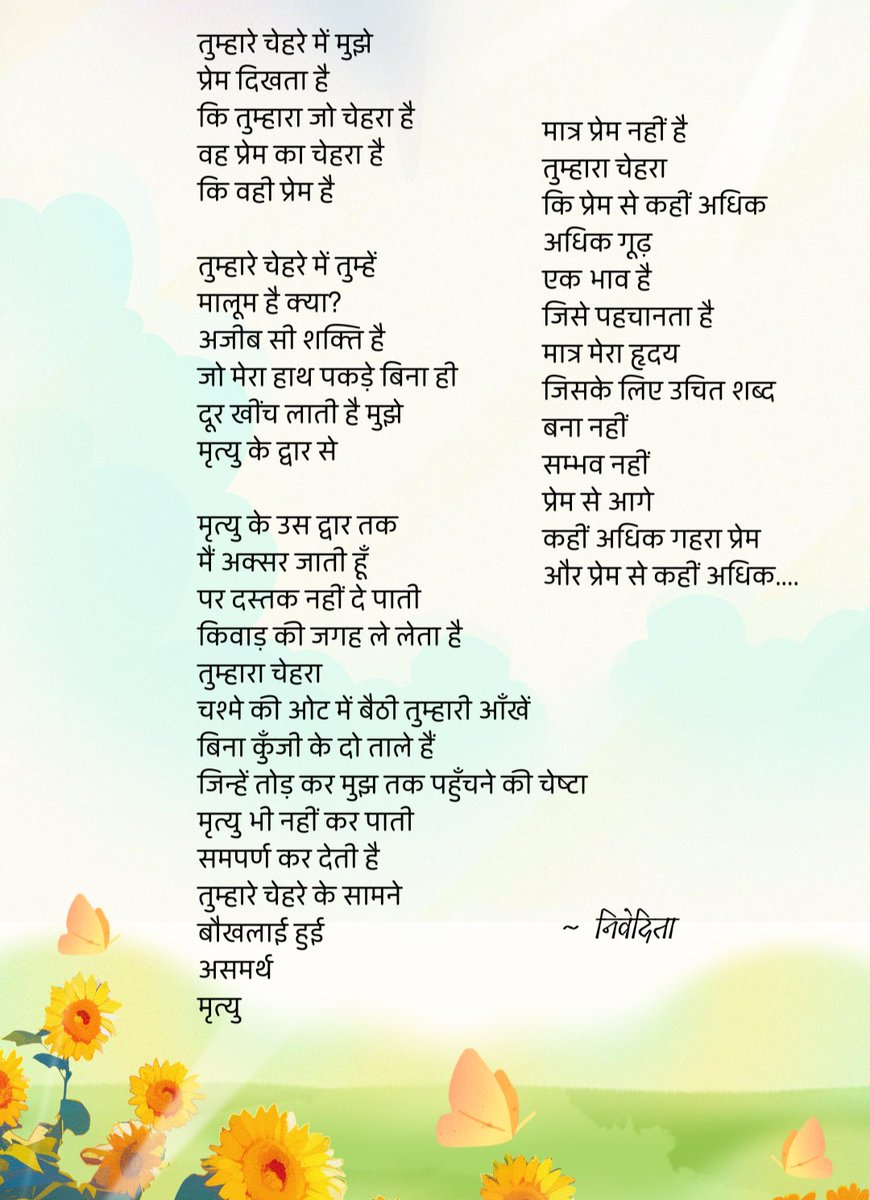 तुम्हारे चेहरे में मुझे
प्रेम दिखता है
कि तुम्हारा जो चेहरा है
वह प्रेम का चेहरा है
कि वही प्रेम है
तुम्हारे चेहरे में तुम्हें
मालूम है क्या?
अजीब सी शक्ति है
जो मेरा हाथ पकड़े बिना ही
दूर खींच लाती है मुझे
मृत्यु के द्वार से
मृत्यु के उस द्वार तक
मैं अक्सर जाती हूँ
पर दस्तक नहीं दे पाती
किवाड़ की जगह ले लेता है
तुम्हारा चेहरा
चश्मे की ओट में बैठी तुम्हारी आँखें
बिना कुँजी के दो ताले हैं
जिन्हें तोड़ कर मुझ तक पहुँचने की चेष्टा
मृत्यु भी नहीं कर पाती
समपर्ण कर देती है
तुम्हारे चेहरे के सामने
बौखलाई हुई
असमर्थ
मृत्यु
मात्र प्रेम नहीं है
तुम्हारा चेहरा
कि प्रेम से कहीं अधिक
अधिक गूढ़
एक भाव है
जिसे पहचानता है
मात्र मेरा हृदय
जिसके लिए उचित शब्द
बना नहीं
सम्भव नहीं
प्रेम से आगे
कहीं अधिक गहरा प्रेम
और प्रेम से कहीं अधिक....
~ निवेदिता